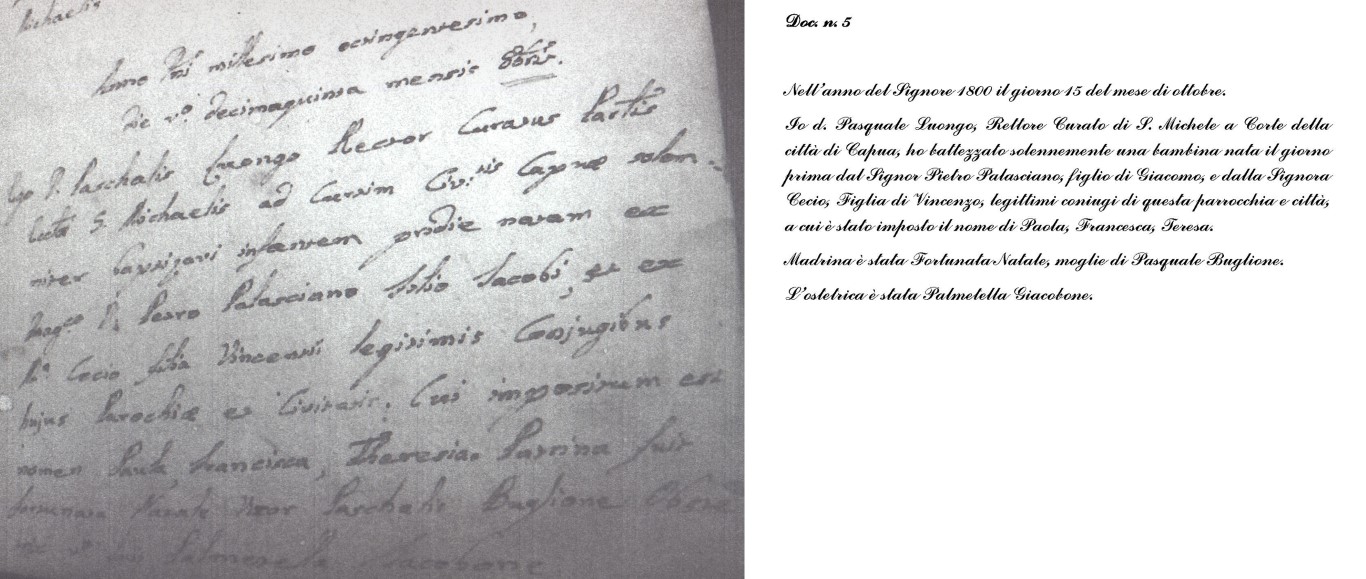 Michaelis
Anno Dni millesimo octingentesimo,
die vº decimaquinta mensis 8bris.
Ego D. Paschalis Luongo Rector Curatus Partis
lectæ S. Michaelis ad Cursim Civ.tis Capuæ solem-
niter baptizavi infantem pridie natam ex
Mag.co D. Petro Palasciano filio Jacobi, et ex
D.a Cecio filia Vincentii legitimis Conjugibus
hujus Parochiæ et Civitatis. Cui impositum est
nomen Paula, Francisca, Theresia. Patrina fuit
Fortunata Natale Uxor Paschalis Buglione
Palmetella Jacobone
Doc. n. 5
Nell'anno del Signore 1800 il giorno 15 del mese di ottobre.
Io d. Pasquale Luongo, Rettore Curato di S. Michele a Corte della
città di Capua, ho battezzato solennemente una bambina nata il giorno
prima dal Signor Pietro Palasciano, figlio di Giacomo, e dalla Signora
Cecio, Figlia di Vincenzo, legittimi coniugi di questa parrocchia e città,
a cui è stato imposto il nome di Paola, Francesca, Teresa.
Madrina è stata Fortunata Natale, moglie di Pasquale Buglione.
L'ostetrica è stata Palmetella Giacobone.